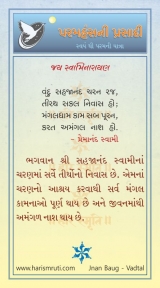 પરમહંસની પ્રસાદી
સ્વયં થી પરમની યાત્રા
જય સ્વામિનારાયણ
વંદુ સહજાનંદ ચરન રજ,
તીરથ સકલ નિવાસ હો;
મંગલધામ કામ સબ પૂરન,
કરત અમંગલ નાશ હો.
- પ્રેમાનંદ સ્વામી
ભગવાન શ્રી સહજાનંદ સ્વામીનાં
ચરણમાં સર્વે તીર્થોનો નિવાસ છે. એમનાં
ચરણનો આશ્રય કરવાથી સર્વ મંગલ
કામનાઓ પૂર્ણ થાય છે અને જીવનમાંથી
અમંગળ નાશ થાય છે.
www.harismruti.com Jnan Baug - Vadtal